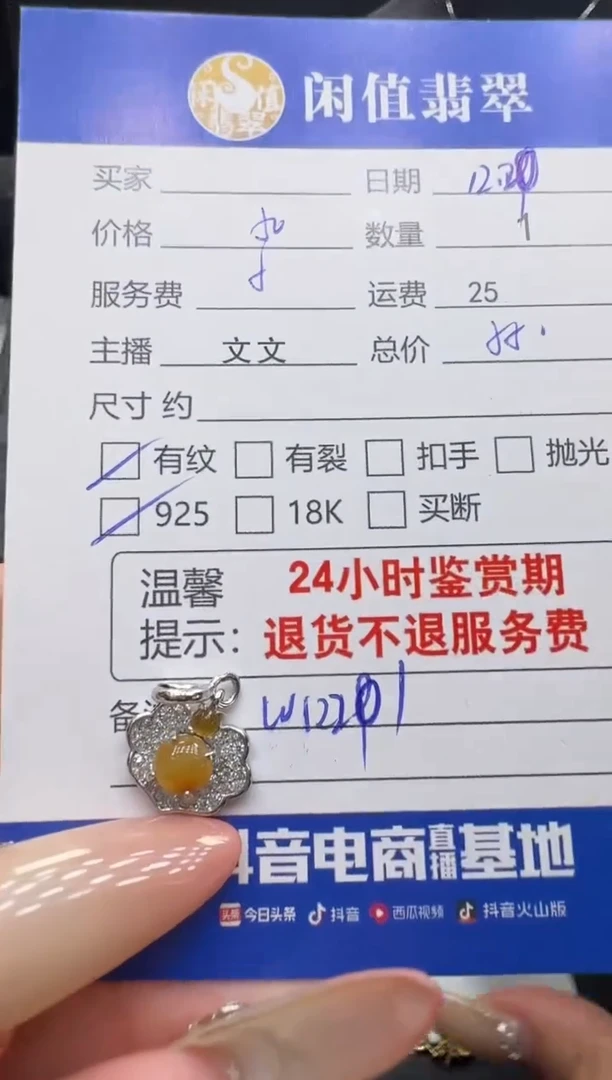 闲值翡翠
买家 日期 12.20
价格 数量 1
服务费 运费 25
主播 文文 总价
尺寸 约
有纹 有裂 扣手 抛光
925 18K 买断
温馨 24小时鉴赏期
提示: 退货不退服务费
备 W12201
抖音电商直播基地
头条 今日头条 抖音 西瓜视频 抖音火山版